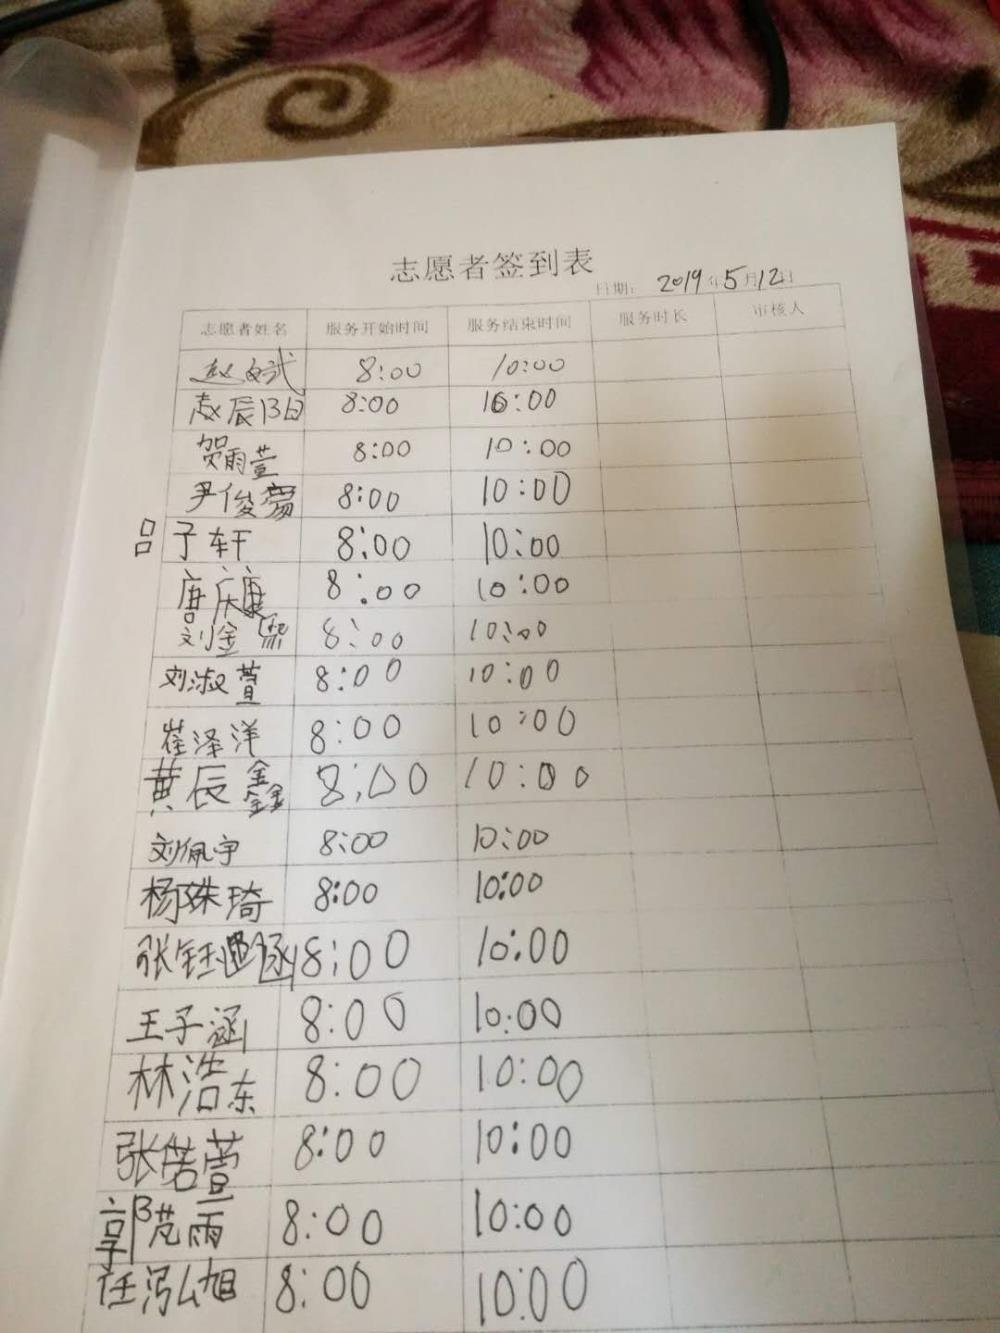 志愿者签到表
日期: 2019年5月12日
志愿者姓名 服务开始时间 服务结束时间 服务时长 审核人
赵文武 8:00 10:00
赵辰阳 8:00 10:00
贺雨萱 8:00 10:00
尹俊 8:00 10:00
吕子轩 8:00 10:00
唐庆康 8:00 10:00
刘金熙 8:00 10:00
刘淑萱 8:00 10:00
崔泽洋 8:00 10:00
黄辰鑫 8:00 10:00
刘佩宇 8:00 10:00
杨姝琦 8:00 10:00
张钰涵 8:00 10:00
王子涵 8:00 10:00
林浩东 8:00 10:00
张偌萱 8:00 10:00
郭芃雨 8:00 10:00
任泓旭 8:00 10:00